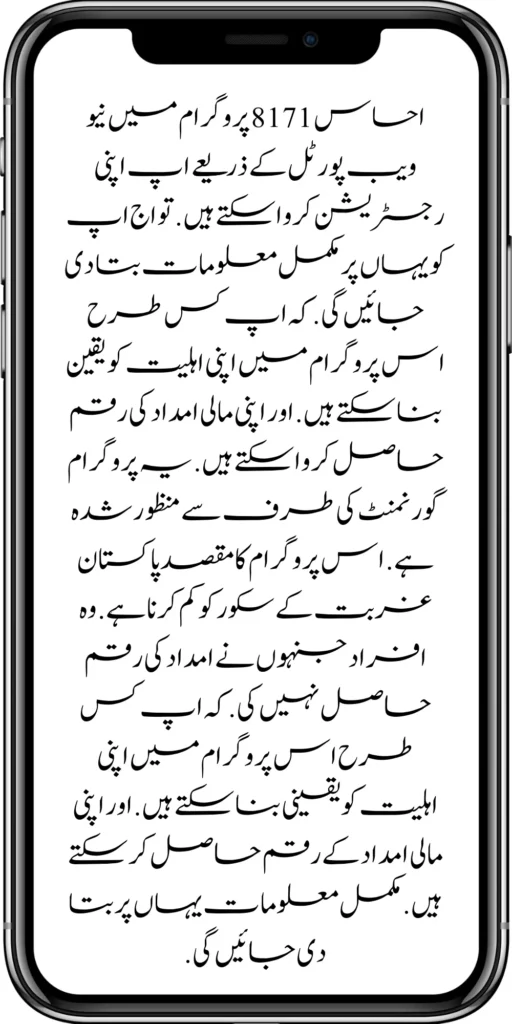 احساس 8171 پروگرام میں نیو
ویب پورٹل کے ذریعے اپ اپنی
رجسٹریشن کروا سکتے ہیں. تو اج اپ
کو یہاں پر مکمل معلومات بتا دی
جائیں گی. کہ اپ کس طرح
اس پروگرام میں اپنی اہلیت کو یقین
بنا سکتے ہیں. اور اپنی مالی امداد کی رقم
حاصل کروا سکتے ہیں. یہ پروگرام
گورنمنٹ کی طرف سے منظور شدہ
ہے. اس پروگرام کا مقصد پاکستان
غربت کے سکور کو کم کرنا ہے. وہ
افراد جنہوں نے امداد کی رقم
حاصل نہیں کی. کہ اپ کس
طرح اس پروگرام میں اپنی
اہلیت کو یقینی بنا سکتے ہیں. اور اپنی
مالی امداد کے رقم حاصل کر سکتے
ہیں. مکمل معلومات یہاں پر بتا
دی جائیں گی.